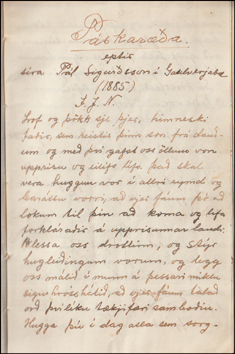 Páskaræða.
eptir
síra Pál Sigurðsson í Gaulverjabæ
(1885)
Í. J. N.
Lof og þökk sje þjer, himneski
faðir, sem reistir þinn son frá dauð-
um og með því gafst oss öllum von
upprisu og eilífs lífs. Það skal
vera huggun vor í allri neyð og
baráttu vorri, að vjer fáum þó að
lokum til þín að koma og lifa
forklaraðir á upprisunnar landi.
Blessa oss drottinn, og stýr
hugleiðingum vorum, og legg
oss málið í munn á þessari miklu
sigurhróshátíð, að vjer fáum talað
orð því líku tækifæri samboðin.
Hugga þú í dag alla sem sorg-